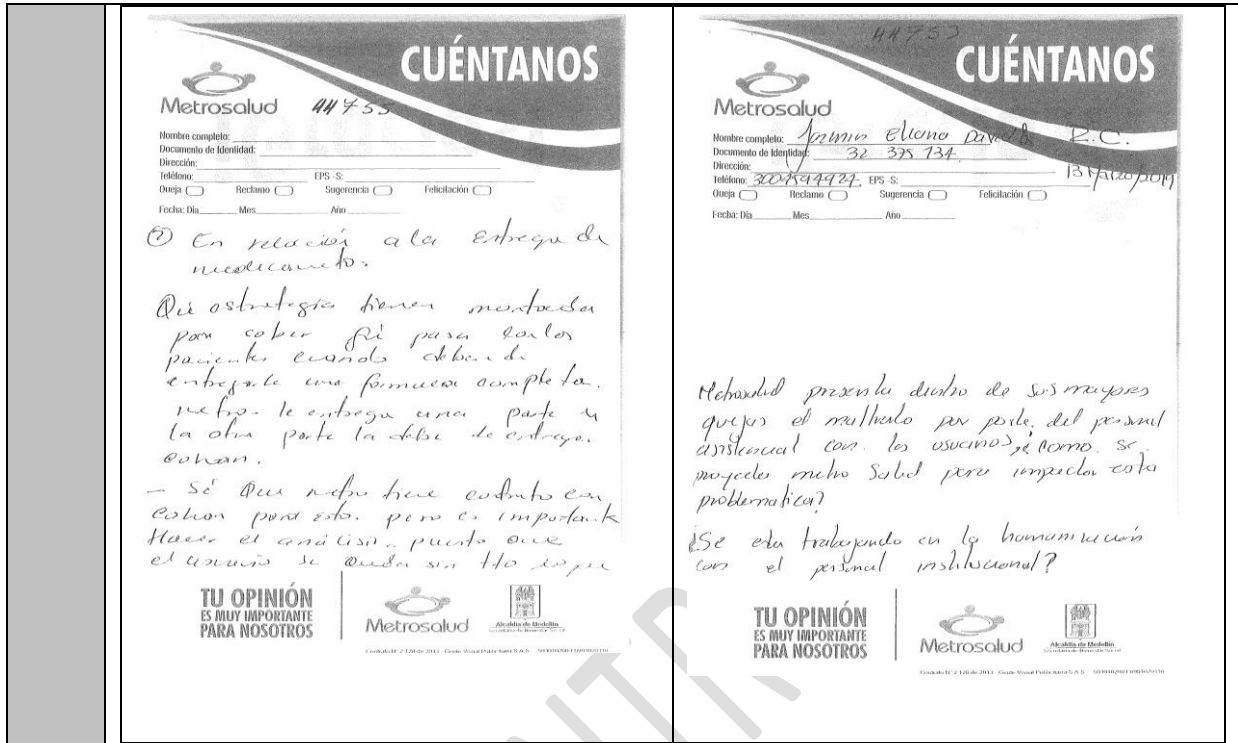 CUÉNTANOS
Metrosalud
44755
Nombre completo:
Documento de Identidad:
Dirección:
Teléfono: EPS -S:
Queja Reclamo Sugerencia Felicitación
Fecha: Día Mes Año
En relación a la entrega de
medicamento.
Qué estrategia tienen montada
para saber qué pasa con los
pacientes cuando deben de
entregarle una formula completa.
metro- le entrega una parte y
la otra parte la debe de entregar
cohan.
- Sé que metro tiene contrato con
cohan para esto. pero es importante
Hacer el análisis. puesto que
el usuario se queda sin tto
TU OPINIÓN
ES MUY IMPORTANTE
PARA NOSOTROS
Metrosalud
Alcaldía de Medellín
44755
CUÉNTANOS
Metrosalud
Nombre completo: Eliana R.C.
Documento de Identidad: 32 375 134
Dirección:
Teléfono: EPS -S:
Queja Reclamo Sugerencia Felicitación
Fecha: Día Mes Año
Metrosalud presenta dentro de sus mayores
quejas el maltrato por parte del personal
asistencial con los usuarios, ¿como se
proyecta metro Salud para impactar esta
problematica?
¿Se esta trabajando en la humanización
con el personal institucional?
TU OPINIÓN
ES MUY IMPORTANTE
PARA NOSOTROS
Metrosalud
Alcaldía de Medellín